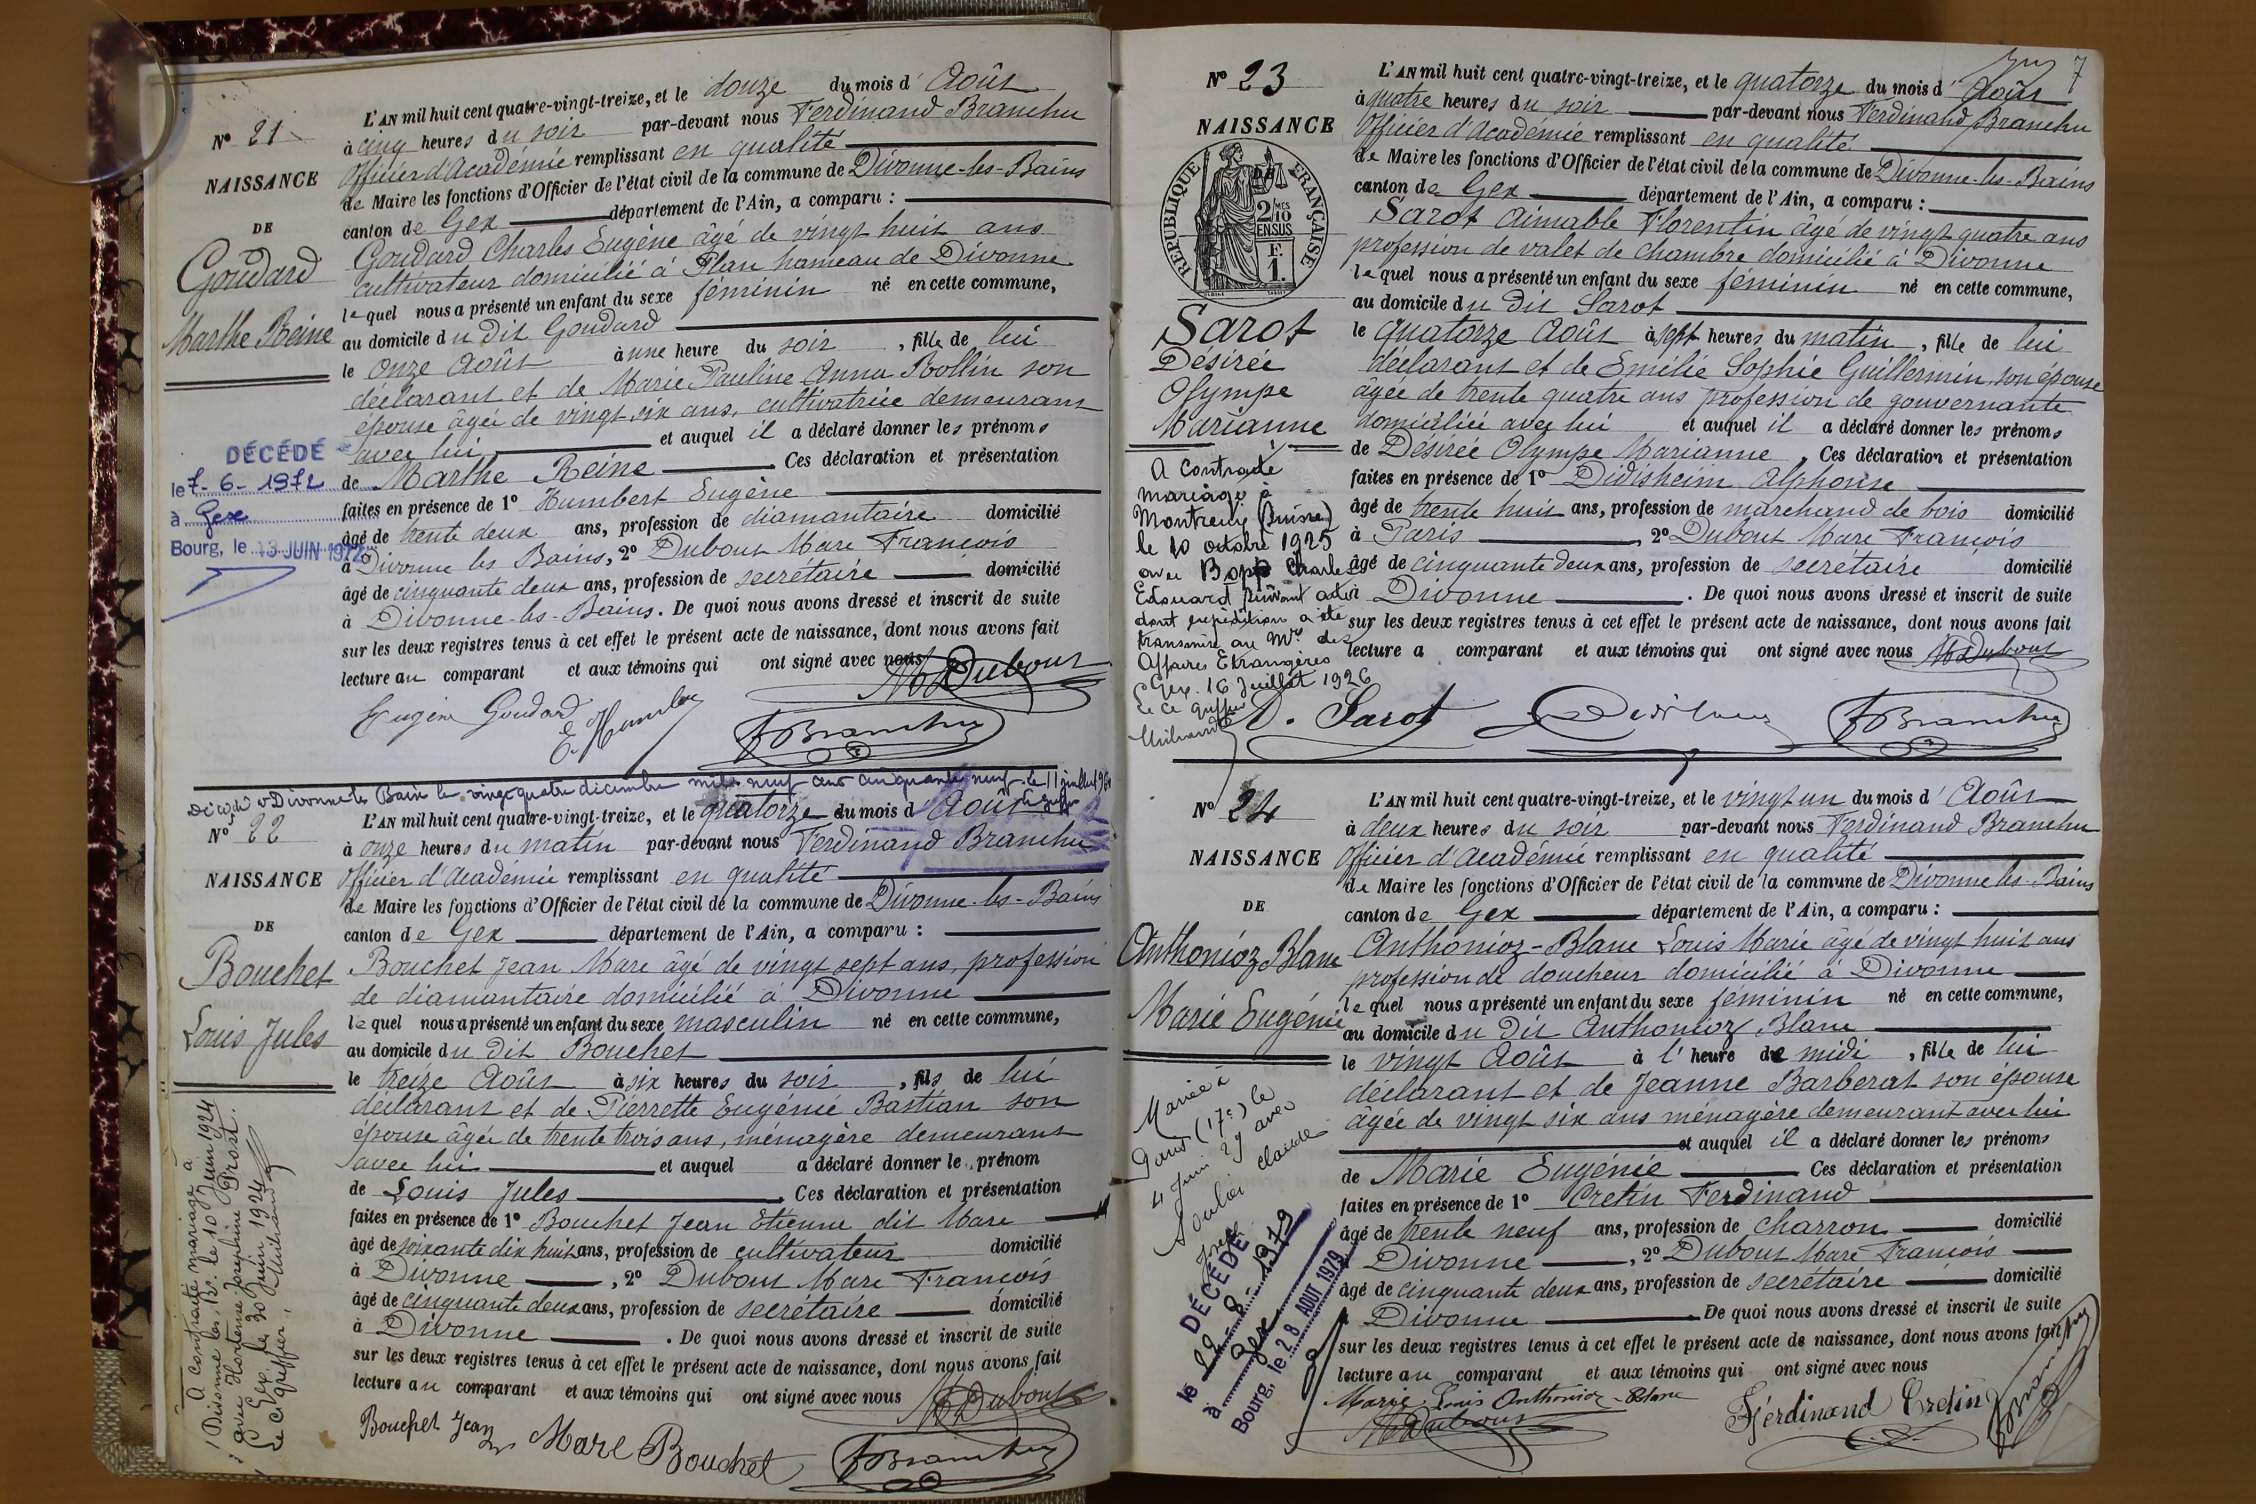 N° 21
NAISSANCE
DE
Goudard
Marthe Reine
DÉCÉDÉ
le 7-6-1972
à Gex
Bourg, le 13 JUIN 1972
L'AN mil huit cent quatre-vingt-treize, et le douze du mois d'Août
à cinq heures du soir par-devant nous Ferdinand Branchu
Officier d'Académie remplissant en qualité
de Maire les fonctions d'Officier de l'état civil de la commune de Divonne-les-Bains
canton de Gex département de l'Ain, a comparu :
Goudard Charles Eugène âgé de vingt huit ans
cultivateur domicilié à Plan hameau de Divonne
lequel nous a présenté un enfant du sexe féminin né en cette commune,
au domicile du dit Goudard
le onze Août à une heure du soir, fille de lui
déclarant et de Marie Pauline Anna Rollin son
épouse âgée de vingt six ans, cultivatrice demeurant
avec lui et auquel il a déclaré donner les prénoms
de Marthe Reine. Ces déclaration et présentation
faites en présence de 1° Humbert Eugène
âgé de trente deux ans, profession de diamantaire domicilié
à Divonne les Bains, 2° Dubout Marc François
âgé de cinquante deux ans, profession de secrétaire domicilié
à Divonne-les-Bains. De quoi nous avons dressé et inscrit de suite
sur les deux registres tenus à cet effet le présent acte de naissance, dont nous avons fait
lecture au comparant et aux témoins qui ont signé avec nous MDubout
Eugène Goudard E. Humbert FBranchu
Décédé à Divonne les Bains le vingt quatre décembre mil neuf cent cinquante neuf. le 11 juillet 1960
N° 22
NAISSANCE
DE
Bouchet
Louis Jules
A contracté mariage à
Divonne les B. le 10 Juin 1924
avec Hortense Joséphine Prost.
Gex, le 30 Juin 1924
Le Greffier,
L'AN mil huit cent quatre-vingt-treize, et le quatorze du mois d'Août
à onze heures du matin par-devant nous Ferdinand Branchu
Officier d'Académie remplissant en qualité
de Maire les fonctions d'Officier de l'état civil de la commune de Divonne-les-Bains
canton de Gex département de l'Ain, a comparu :
Bouchet Jean Marc âgé de vingt sept ans, profession
de diamantaire domicilié à Divonne
lequel nous a présenté un enfant du sexe masculin né en cette commune,
au domicile du dit Bouchet
le treize Août à six heures du soir, fils de lui
déclarant et de Pierrette Eugénie Bastian son
épouse âgée de trente trois ans, ménagère demeurant
avec lui et auquel a déclaré donner le prénom
de Louis Jules. Ces déclaration et présentation
faites en présence de 1° Bouchet Jean Etienne dit Marc
âgé de soixante dix huit ans, profession de cultivateur domicilié
à Divonne, 2° Dubout Marc François
âgé de cinquante deux ans, profession de secrétaire domicilié
à Divonne. De quoi nous avons dressé et inscrit de suite
sur les deux registres tenus à cet effet le présent acte de naissance, dont nous avons fait
lecture au comparant et aux témoins qui ont signé avec nous MDubout
Bouchet Jean Marc Bouchet FBranchu
7
N° 23
NAISSANCE
DE
RÉPUBLIQUE FRANÇAISE
2/10 MES
EN SUS
F.
1.
Sarot
Désirée
Olympe
Marianne
A contracté
mariage à
Montreux (Suisse)
le 10 octobre 1925
avec Bopp Charles
Edouard suivant acte
dont expédition a été
transmise au Mre des
Affaires Etrangères
Gex. 16 Juillet 1926
Le Greffier
L'AN mil huit cent quatre-vingt-treize, et le quatorze du mois d'Août
à quatre heures du soir par-devant nous Ferdinand Branchu
Officier d'Académie remplissant en qualité
de Maire les fonctions d'Officier de l'état civil de la commune de Divonne-les-Bains
canton de Gex département de l'Ain, a comparu :
Sarot Aimable Florentin âgé de vingt quatre ans
profession de valet de chambre domicilié à Divonne
lequel nous a présenté un enfant du sexe féminin né en cette commune,
au domicile du dit Sarot
le quatorze Août à sept heures du matin, fille de lui
déclarant et de Emélie Sophie Guillermin, son épouse
âgée de trente quatre ans profession de gouvernante
domiciliée avec lui et auquel il a déclaré donner les prénoms
de Désirée Olympe Marianne. Ces déclaration et présentation
faites en présence de 1° Didisheim Alphonse
âgé de trente huit ans, profession de marchand de bois domicilié
à Paris, 2° Dubout Marc François
âgé de cinquante deux ans, profession de secrétaire domicilié
à Divonne. De quoi nous avons dressé et inscrit de suite
sur les deux registres tenus à cet effet le présent acte de naissance, dont nous avons fait
lecture a comparant et aux témoins qui ont signé avec nous MDubout
A. Sarot Didisheim FBranchu
N° 24
NAISSANCE
DE
Anthonioz Blanc
Marie Eugénie
Mariée à
Paris (17e) le
4 Juin 27 avec
Soulié Claude
Joseph
DÉCÉDÉ
le 22 8 1979
à Gex
Bourg, le 28 AOUT 1979
L'AN mil huit cent quatre-vingt-treize, et le vingt un du mois d'Août
à deux heures du soir par-devant nous Ferdinand Branchu
Officier d'Académie remplissant en qualité
de Maire les fonctions d'Officier de l'état civil de la commune de Divonne les-Bains
canton de Gex département de l'Ain, a comparu :
Anthonioz-Blanc Louis Marie âgé de vingt huit ans
profession de doucheur domicilié à Divonne
lequel nous a présenté un enfant du sexe féminin né en cette commune,
au domicile du dit Anthonioz Blanc
le vingt Août à l'heure de midi, fille de lui
déclarant et de Jeanne Barberat son épouse
âgée de vingt six ans ménagère demeurant avec lui
et auquel il a déclaré donner les prénoms
de Marie Eugénie Ces déclaration et présentation
faites en présence de 1° Cretin Ferdinand
âgé de trente neuf ans, profession de charron domicilié
à Divonne, 2° Dubout Marc François
âgé de cinquante deux ans, profession de secrétaire domicilié
à Divonne. De quoi nous avons dressé et inscrit de suite
sur les deux registres tenus à cet effet le présent acte de naissance, dont nous avons fait
lecture au comparant et aux témoins qui ont signé avec nous
Marie Louis Anthonioz-Blanc
MDubout Ferdinand Cretin FBranchu